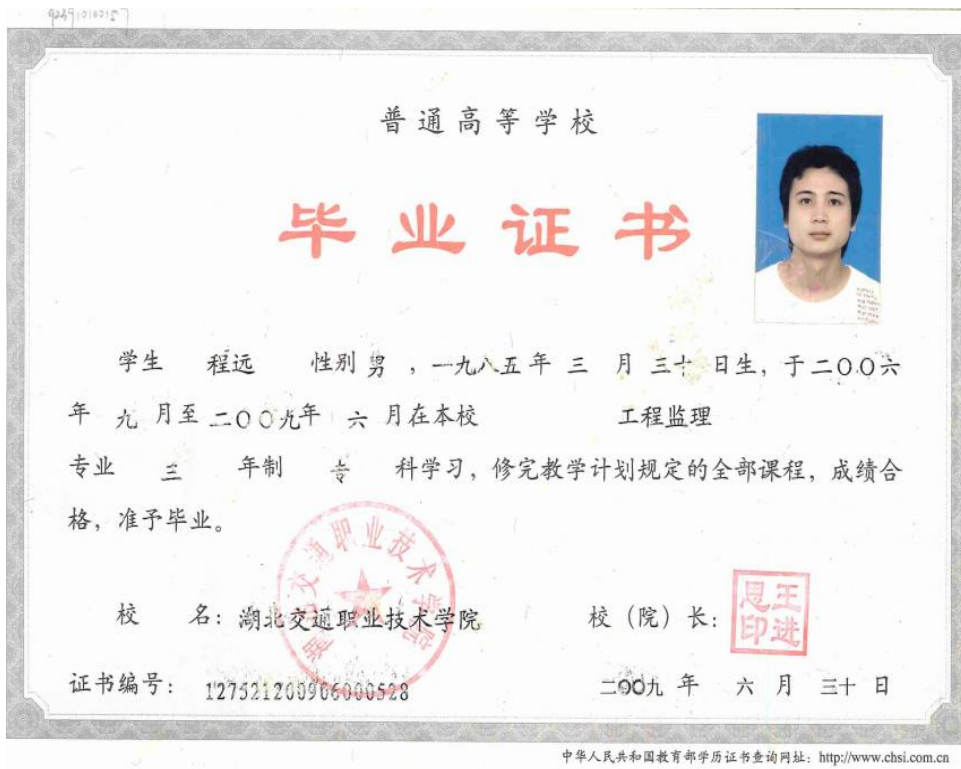 普通高等学校
毕业证书
学生 程远 性别 男 ，一九八五年 三 月 三十 日生，于二〇〇六
年 九 月至 二〇〇九年 六 月在本校 工程监理
专业 三 年制 专 科学习，修完教学计划规定的全部课程，成绩合
格，准予毕业。
湖北交通职业技术学院
校 名：湖北交通职业技术学院 校（院）长：
王进思印
证书编号： 127521200906000528 二〇〇九 年 六 月 三十 日
中华人民共和国教育部学历证书查询网址：http://www.chsi.com.cn